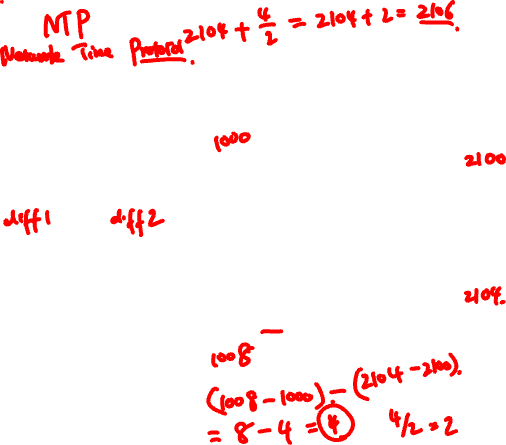 NTP
Network Time Protocol.
2104 + 4/2 = 2104 + 2 = 2106.
1000
2100
diff1 diff2
2104.
1008
(1008 - 1000) - (2104 - 2100).
= 8 - 4 = 4 4/2 = 2